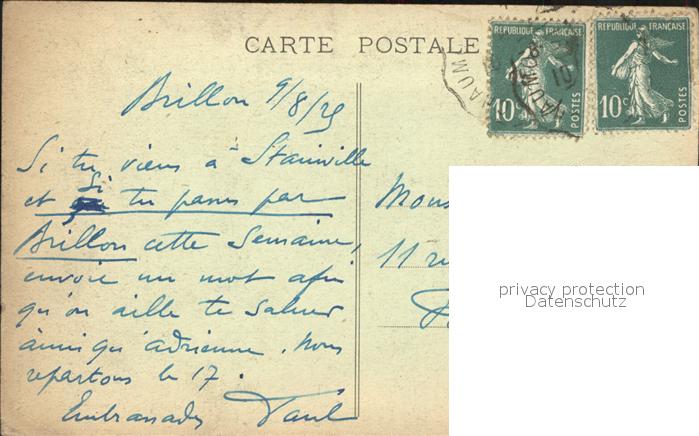 CARTE POSTALE
REPUBLIQUE FRANÇAISE
10c
POSTES
REPUBLIQUE FRANÇAISE
10c
POSTES
Brillon 9/8/25
Si tu viens à Stainville
et si tu passes par
Brillon cette semaine,
envoie un mot afin
qu'on aille te saluer
ainsi qu'Adrienne. Nous
repartons le 17.
Embrassades Paul
11
privacy protection
Datenschutz